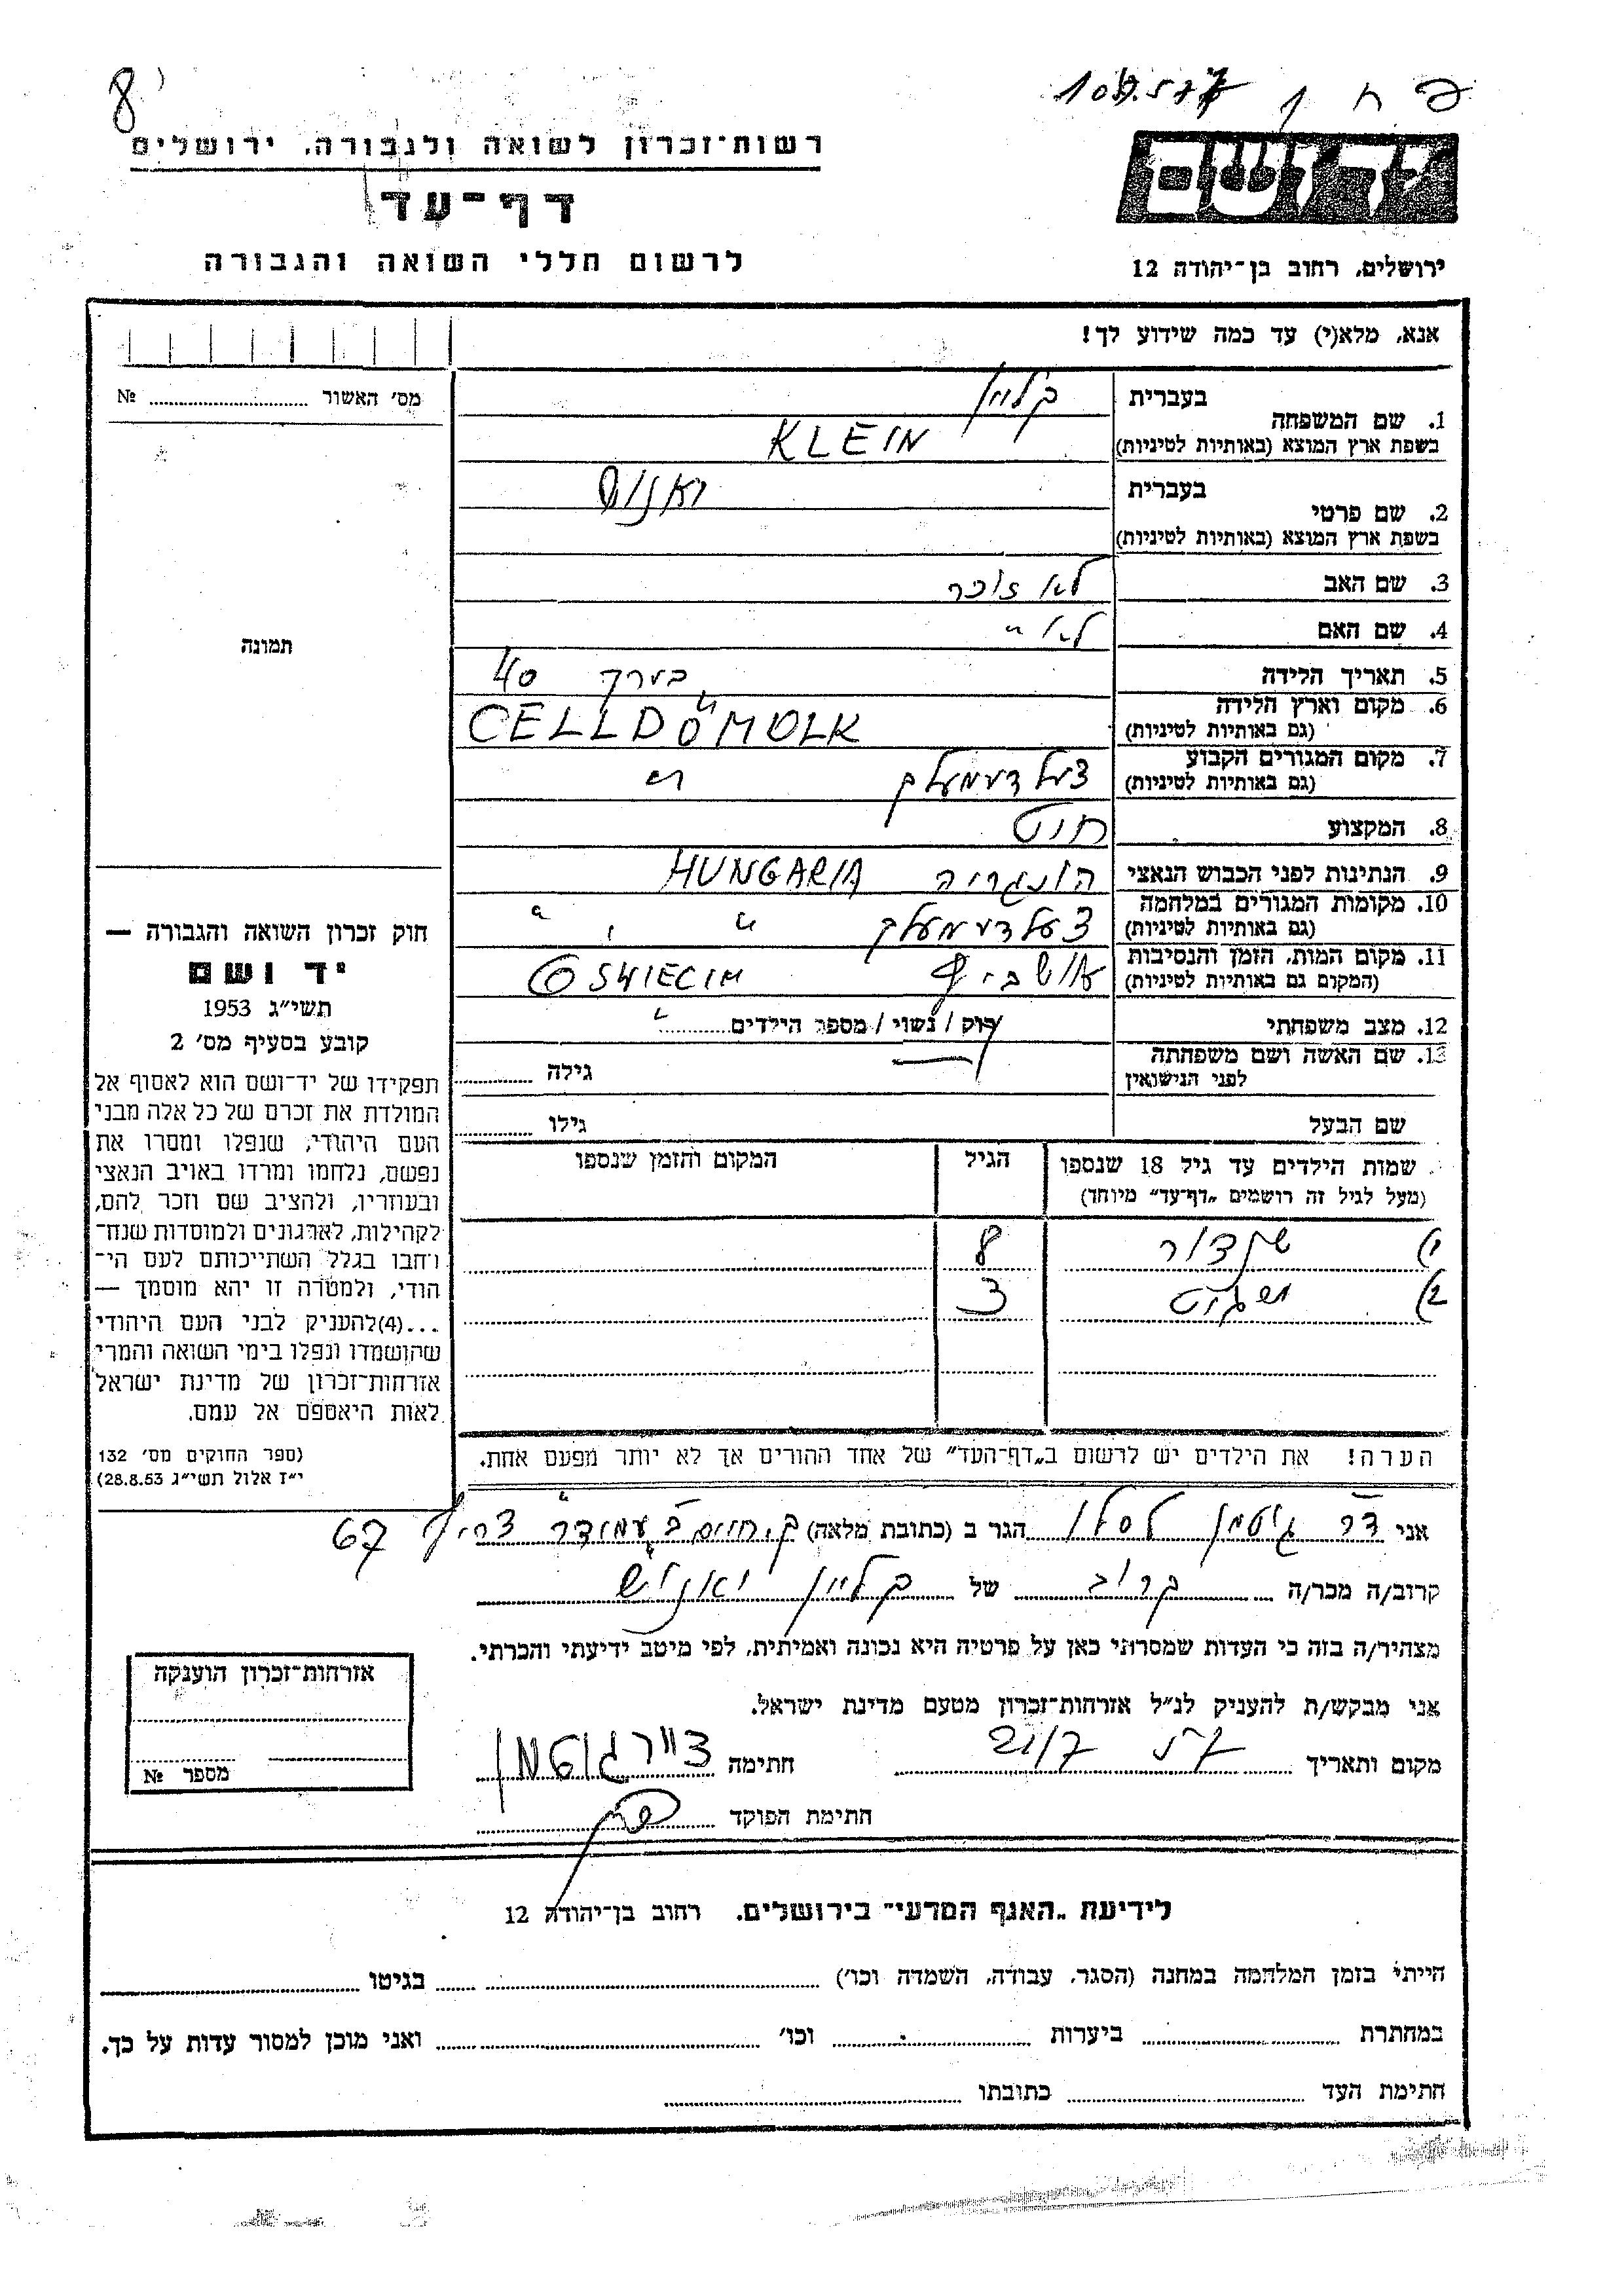 8
פ ח ו
רשות־זכרון לשואה ולגבורה, ירושלים
יד ושם
דף־עד
לרשום חללי השואה והגבורה
ירושלים, רחוב בן־יהודה 12
אנא, מלא(י) עד כמה שידוע לך!
מס׳ האשור № 
1. שם המשפחה בעברית קליין
בשפת ארץ המוצא (באותיות לטיניות) KLEIN
2. שם פרטי בעברית יאנוש
בשפת ארץ המוצא (באותיות לטיניות)
3. שם האב לא זוכר
4. שם האם לא "
תמונה
5. תאריך הלידה בערך 40
6. מקום וארץ הלידה (גם באותיות לטיניות) CELLDÖMOLK
7. מקום המגורים הקבוע (גם באותיות לטיניות) צעלדעמעלק "
8. המקצוע חיט
9. הנתינות לפני הכבוש הנאצי הונגריה HUNGARIA
10. מקומות המגורים במלחמה (גם באותיות לטיניות) צעלדעמעלק " "
11. מקום המות, הזמן והנסיבות (המקום גם באותיות לטיניות) אושביץ OSWIECIM
12. מצב משפחתי רוק / נשוי / מספר הילדים
13. שם האשה ושם משפחתה לפני הנישואין גילה
שם הבעל גילו
חוק זכרון השואה והגבורה —
יד ושם
תשי״ג 1953
קובע בסעיף מס׳ 2
תפקידו של יד־ושם הוא לאסוף אל
המולדת את זכרם של כל אלה מבני
העם היהודי, שנפלו ומסרו את
נפשם, נלחמו ומרדו באויב הנאצי
ובעוזריו, ולהציב שם וזכר להם,
לקהילות, לארגונים ולמוסדות שנח־
רחבו בגלל השתייכותם לעם הי־
הודי, ולמטרה זו יהא מוסמך —
...(4)להעניק לבני העם היהודי
שהושמדו ונפלו בימי השואה והמרי
אזרחות־זכרון של מדינת ישראל
לאות היאספם אל עמם.
(ספר החוקים מס׳ 132
י״ז אלול תשי״ג 28.8.53)
שמות הילדים עד גיל 18 שנספו הגיל המקום והזמן שנספו
(מעל לגיל זה רושמים „דף־עד״ מיוחד)
1) שנדור 8
2) 3
הערה! את הילדים יש לרשום ב„דף־העד״ של אחד ההורים אך לא יותר מפעם אחת.
אני דר גוטמן לסלו הגר ב (כתובת מלאה) ק. חיים ב עמידר צריף 67
קרוב/ה מכר/ה קרוב של קליין יאנוש
מצהיר/ה בזה כי העדות שמסרתי כאן על פרטיה היא נכונה ואמיתית, לפי מיטב ידיעתי והכרתי.
אני מבקש/ת להעניק לנ״ל אזרחות־זכרון מטעם מדינת ישראל.
מקום ותאריך 21/7 חתימה ד״ר גוטמן
חתימת הפוקד
אזרחות־זכרון הוענקה
מספר №
לידיעת „האגף המדעי״ בירושלים, רחוב בן־יהודה 12
הייתי בזמן המלחמה במחנה (הסגר, עבודה, השמדה וכו׳) בגיטו
במחתרת ביערות וכו׳ ואני מוכן למסור עדות על כך.
חתימת העד כתובתו